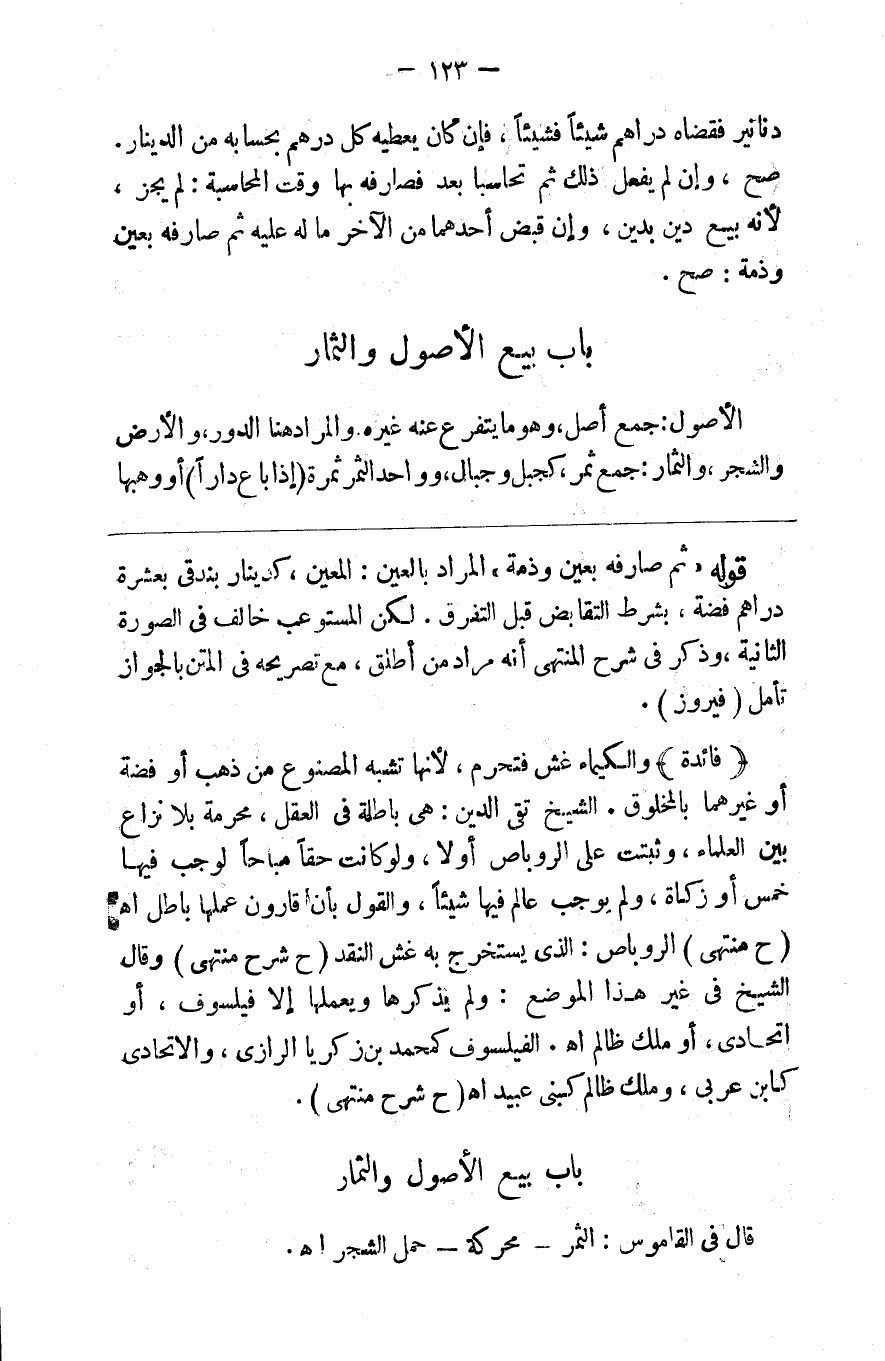 — ١٢٣ —
دنانير فقضاه دراهم شيئاً فشيئاً ، فإن كان يعطيه كل درهم بحسابه من الدينار .
صح ، وإن لم يفعل ذلك ثم تحاسبا بعد فصارفه بها وقت المحاسبة : لم يجز ،
لأنه بيع دين بدين ، وإن قبض أحدهما من الآخر ما له عليه ثم صارفه بعين
وذمة : صح .
باب بيع الأصول والثمار
الأصول : جمع أصل ، وهو ما يتفرع عنه غيره . والمراد هنا الدور ، والأرض
والشجر ، والثمار : جمع ثمر ، كجبل وجبال ، وواحد الثمر ثمرة (إذا باع داراً) أو وهبها
قوله « ثم صارفه بعين وذمة » المراد بالعين : المعين ، كدينار بندقى بعشرة
دراهم فضة ، بشرط التقابض قبل التفرق . لكن المستوعب خالف فى الصورة
الثانية ، وذكر فى شرح المنتهى أنه مراد من أطلق ، مع تصريحه فى المتن بالجواز
تأمل ( فيروز ) .
﴿ فائدة ﴾ والكيماء غش فتحرم ، لأنها تشبه المصنوع من ذهب أو فضة
أو غيرهما بالمخلوق . الشيخ تقى الدين : هى باطلة فى العقل ، محرمة بلا نزاع
بين العلماء ، وثبتت على الروباص أولا ، ولو كانت حقاً مباحاً لوجب فيها
خمس أو زكاة ، ولم يوجب عالم فيها شيئاً ، والقول بأن قارون عملها باطل اه
( ح منتهى ) الروباص : الذى يستخرج به غش النقد ( ح شرح منتهى ) وقال
الشيخ فى غير هذا الموضع : ولم يذكرها ويعملها إلا فيلسوف ، أو
اتحادى ، أو ملك ظالم اه . الفيلسوف كمحمد بن زكريا الرازى ، والاتحادى
كابن عربى ، وملك ظالم كبنى عبيد اه ( ح شرح منتهى ) .
باب بيع الأصول والثمار
قال فى القاموس : الثمر — محركة — حمل الشجر اه .